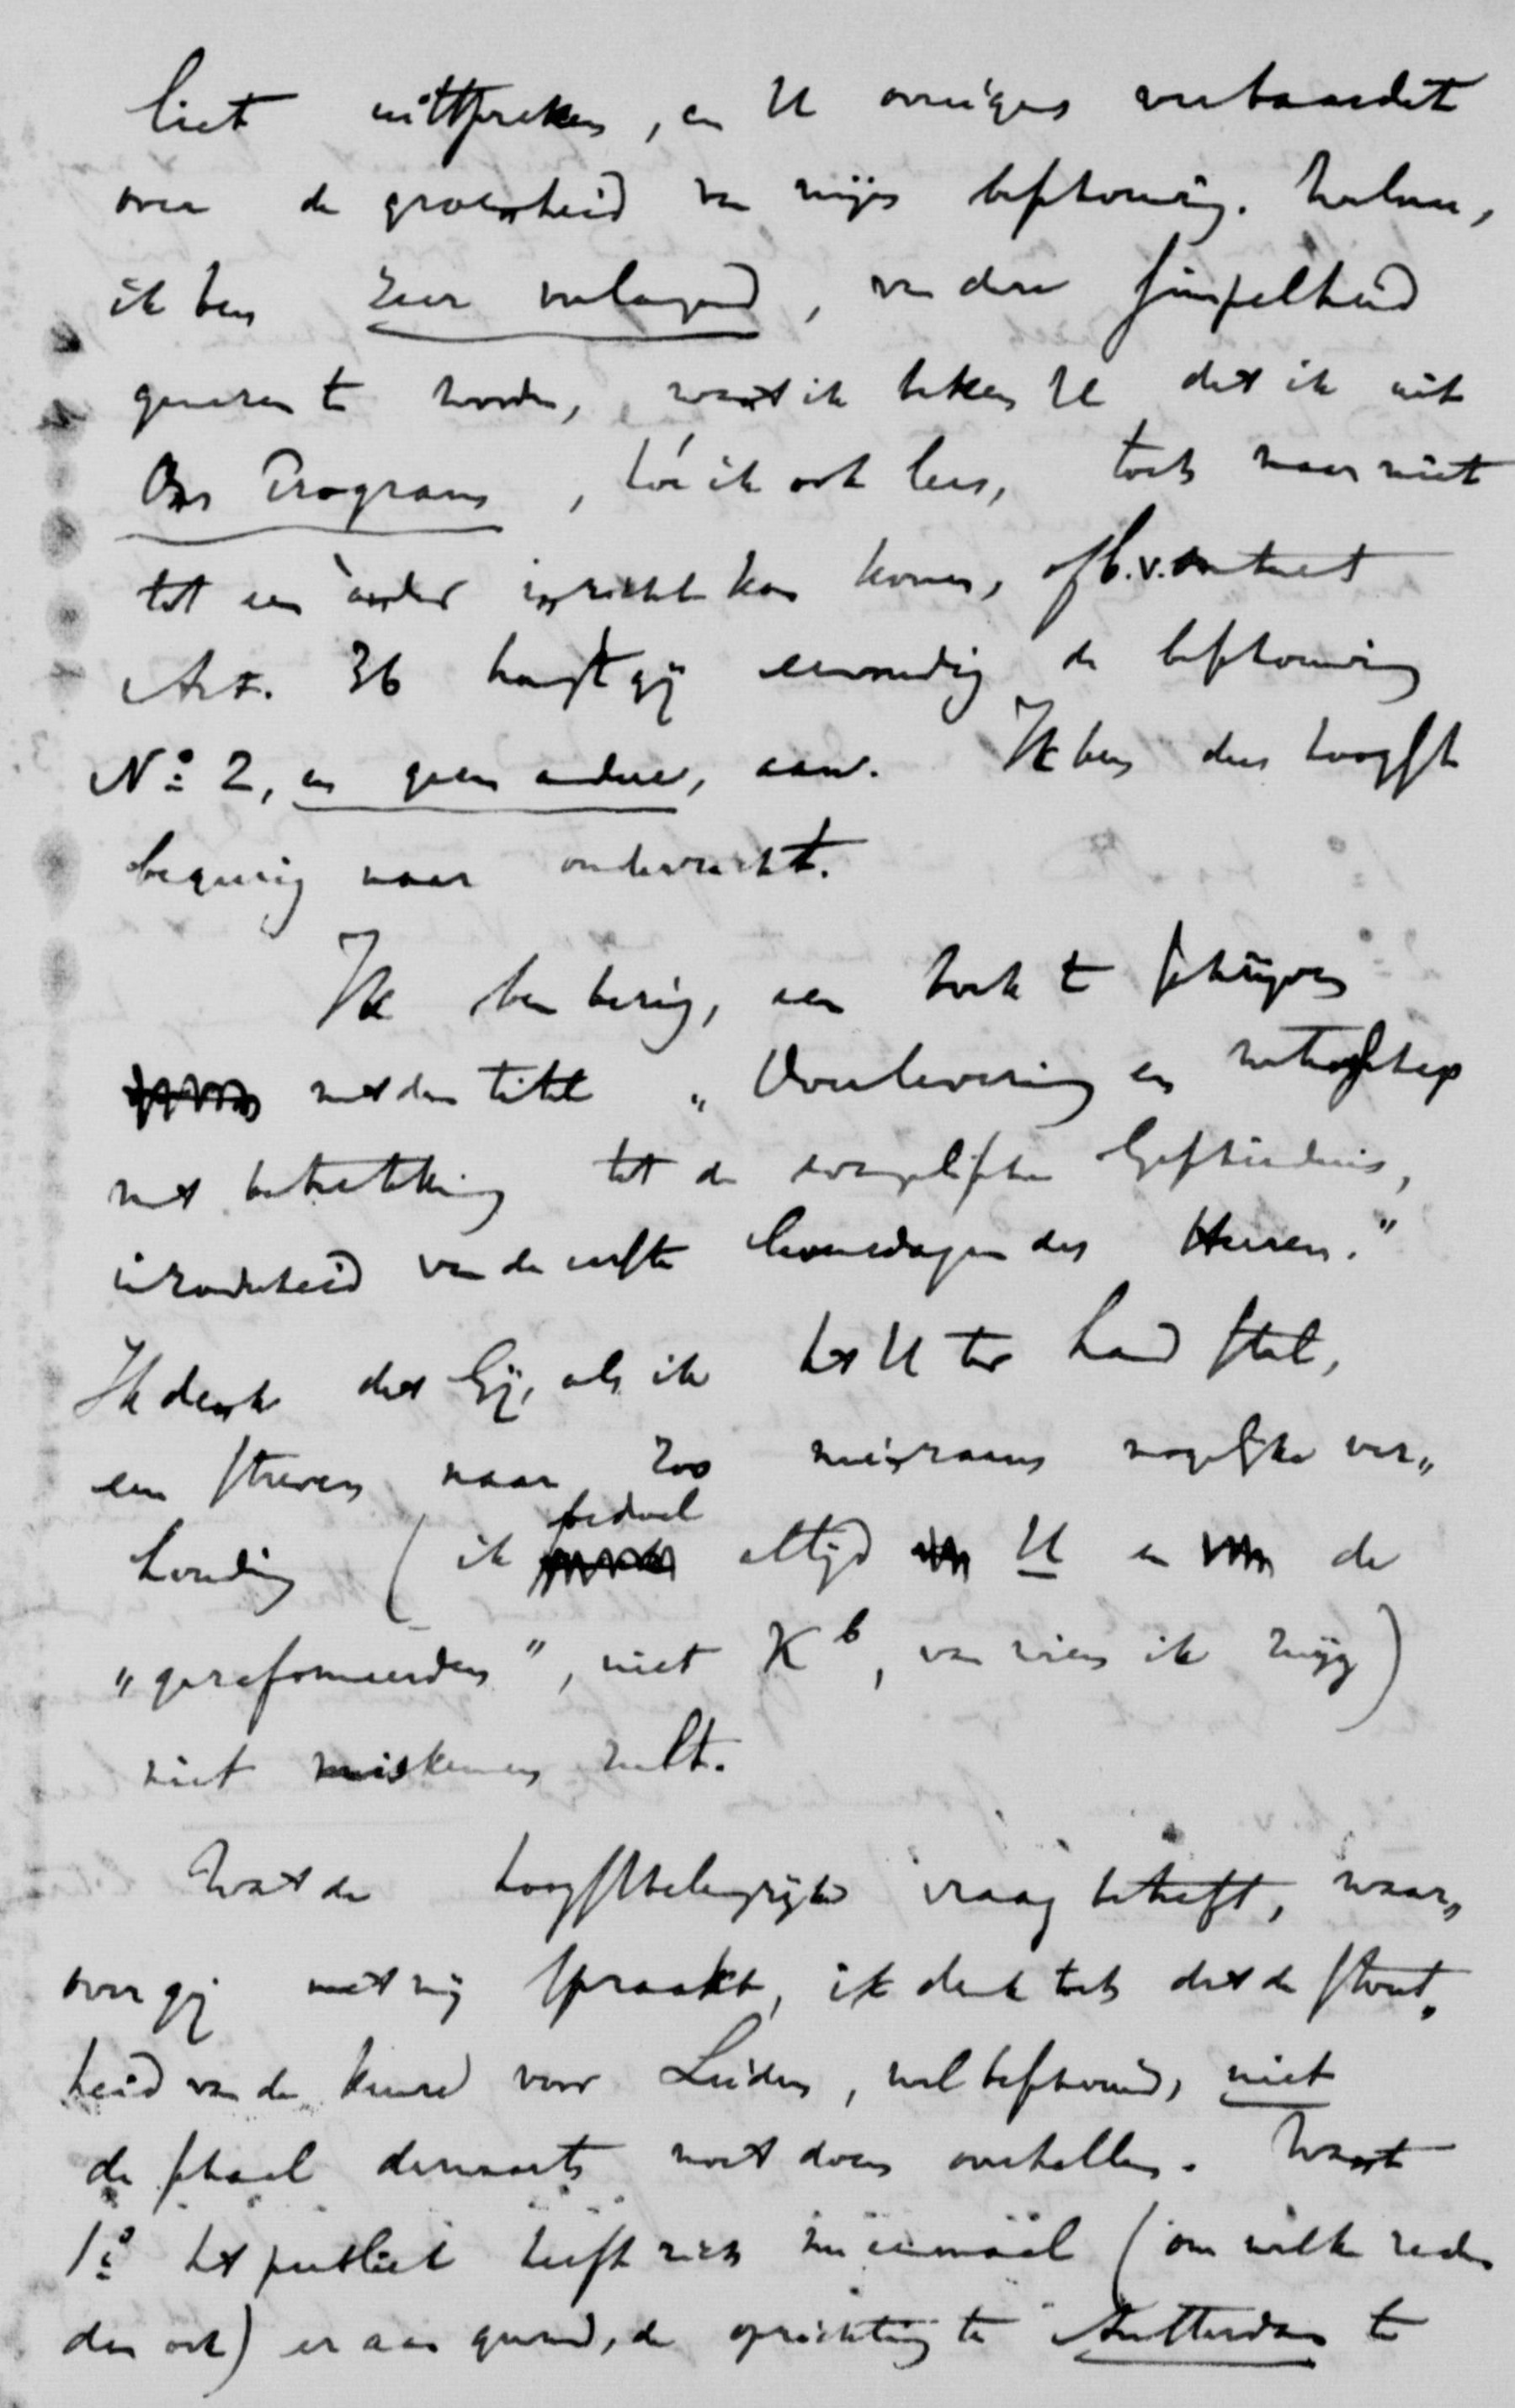 liet uitspreken, en U overigens verbaasdet
over de groenheid van mijn beschouwing. Welnu,
ik ben zeer verlangend, van deze simpelheid
genezen te worden, want ik beken U dat ik uit
Ons Program, hóe ik ook lees, toch maar niet
tot een ander inzicht kan komen, of b.v. omtrent
Art. 36 hangt gij eenvoudig de beschouwing
No. 2, en geen andere, aan. Ik ben dus hoogst
begeerig naar onderricht.
Ik ben bezig, een boek te schrijven
met den titel „Overlevering en wetenschap
met betrekking tot de evangelische Geschiedenis,
inzonderheid van de eerste levensdagen des Heeren."
Ik denk dat Gij, als ik het U ter hand stel,
een streven naar zoo nauwkeurig mogelijke ver„
houding (ik bedoel altijd U en de
„gereformeerden", niet Kb, van wien ik zwijg)
niet miskennen zult.
Wat de hoogstbelangrijke vraag betreft, waar„
over gij met mij spraakt, ik denk toch dat de stout„
heid van de keuze voor Leiden, wel beschouwd, niet
de schaal derwaarts moet doen overhellen. Want
1o het publiek heeft zich nu eenmaal (om welke reden
dan ook) er aan gewend, de oprichting te Amsterdam te